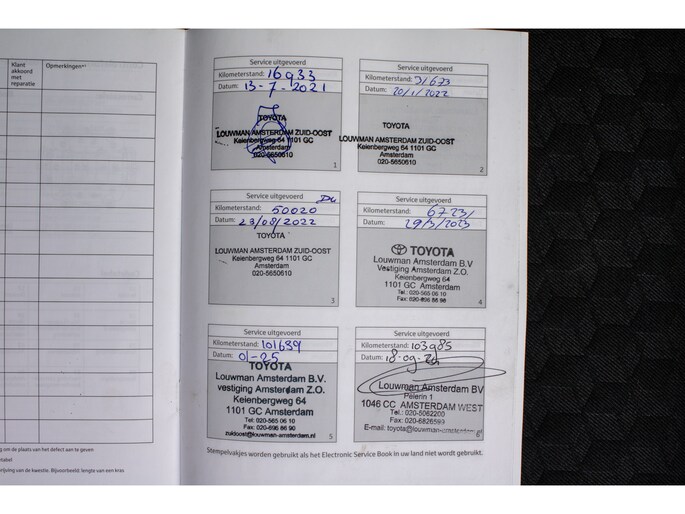 Klant
akkoord
met
reparatie
Opmerkingen**
Service uitgevoerd
Kilometerstand: 16933
Datum: 13-7-2021
TOYOTA
LOUWMAN AMSTERDAM ZUID-OOST
Keienbergweg 64 1101 GC
Amsterdam
020-5650610
1
Service uitgevoerd
Kilometerstand: 31673
Datum: 20/1/2022
TOYOTA
LOUWMAN AMSTERDAM ZUID-OOST
Keienbergweg 64 1101 GC
Amsterdam
020-5650610
2
Service uitgevoerd
Kilometerstand: 50020
Datum: 23/08/2022
TOYOTA
LOUWMAN AMSTERDAM ZUID-OOST
Keienbergweg 64 1101 GC
Amsterdam
020-5650610
3
Service uitgevoerd
Kilometerstand: 67231
Datum: 29/3/2023
TOYOTA
Louwman Amsterdam B.V
Vestiging Amsterdam Z.O.
Keienbergweg 64
1101 GC Amsterdam
Tel.: 020-565 06 10
Fax: 020-696 86 96
4
Service uitgevoerd
Kilometerstand: 101639
Datum: 01-25
TOYOTA
Louwman Amsterdam B.V.
vestiging Amsterdam Z.O.
Keienbergweg 64
1101 GC Amsterdam
Tel: 020-565 06 10
Fax: 020-696 86 96
zuidoost@louwman-amsterdam.nl
5
Service uitgevoerd
Kilometerstand: 103985
Datum: 18-09-
Louwman Amsterdam BV
1046 CC AMSTERDAM WEST
Tel.: 020-5062200
Fax: 020-6826593
E-mail: toyota@louwman-amsterdam.nl
6
Stempelvakjes worden gebruikt als het Electronic Service Book in uw land niet wordt gebruikt.
om de plaats van het defect aan te geven
van de kwestie. Bijvoorbeeld: lengte van een kras